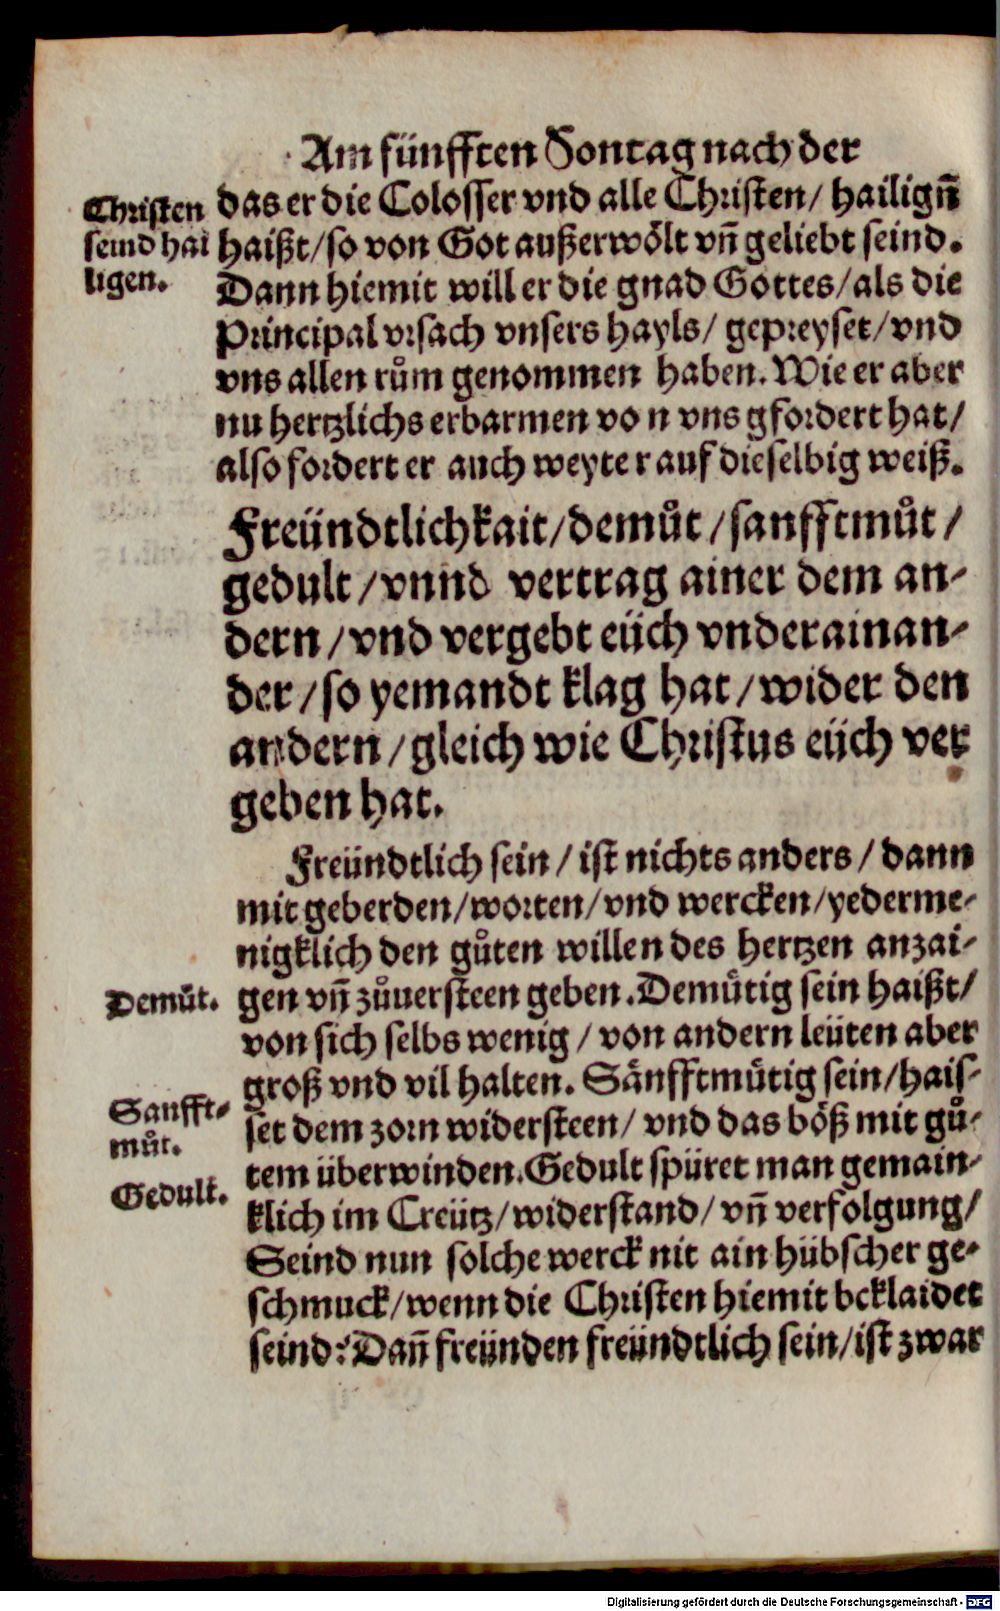 Am fünfften Sontag nach der
Christen
seind hai
ligen.
das er die Colosser vnd alle Christen/ hailign̄
haißt/so von Got außerwölt vn̄ geliebt seind.
Dann hiemit will er die gnad Gottes/als die
Principal vrsach vnsers hayls/ gepreyset/vnd
vns allen rům genommen haben. Wie er aber
nu hertzlichs erbarmen vo n vns gfordert hat/
also fordert er auch weyte r auf dieselbig weiß.
Freündtlichkait/demůt/sanfftmůt/
gedult/vnnd vertrag ainer dem an-
dern/vnd vergebt eüch vnderainan-
der/so yemandt klag hat/wider den
andern/gleich wie Christus eüch ver
geben hat.
Freündtlich sein/ist nichts anders/dann
mit geberden/worten/vnd wercken/yederme-
nigklich den gůten willen des hertzen anzai-
Demůt.
gen vn̄ zůuersteen geben. Demütig sein haißt/
von sich selbs wenig/von andern leüten aber
groß vnd vil halten. Sänfftmütig sein/hais-
Sanfft-
můt.
set dem zorn widersteen/ vnd das böß mit gů-
tem überwinden. Gedult spüret man gemain-
Gedult.
klich im Creütz/widerstand/vn̄ verfolgung/
Seind nun solche werck nit ain hübscher ge-
schmuck/wenn die Christen hiemit beklaidet
seind? Dan̄ freünden freündtlich sein/ist zwar
Digitalisierung gefördert durch die Deutsche Forschungsgemeinschaft - DFG